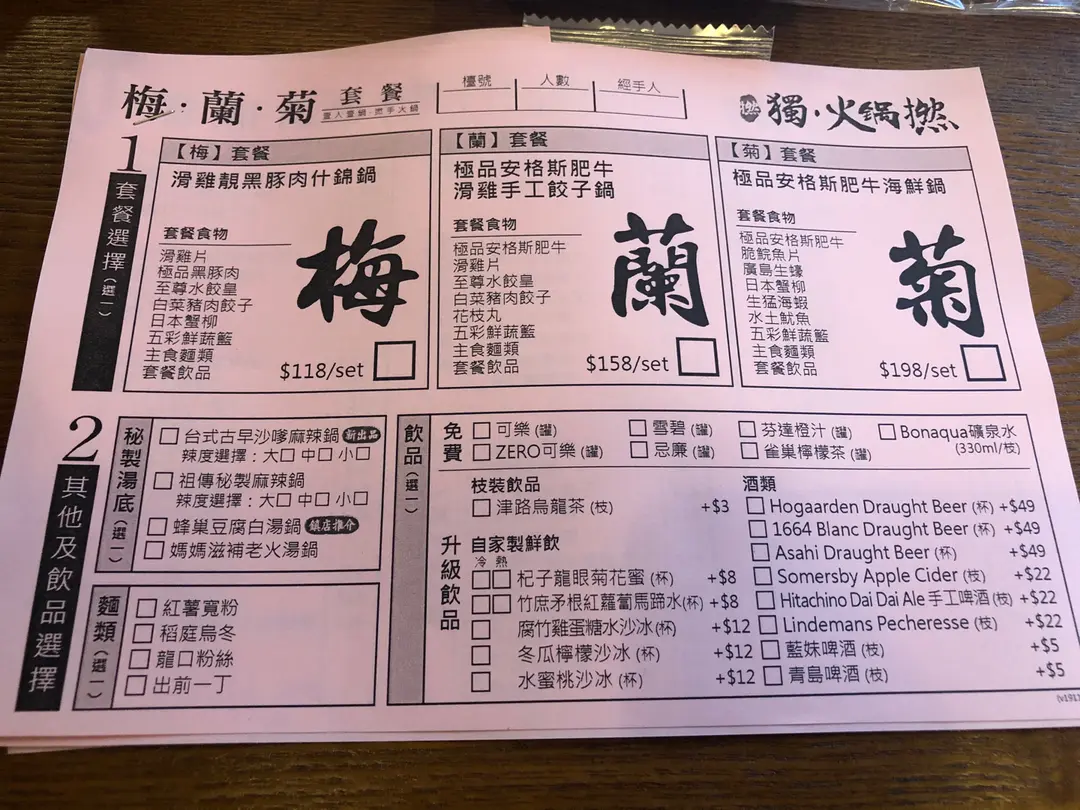 梅·蘭·菊 套餐
壹人壹鍋·撚手火鍋
檯號 人數 經手人
撚 獨·火鍋撚
1 套餐選擇(選一)
【梅】套餐
滑雞靚黑豚肉什錦鍋
套餐食物
滑雞片
極品黑豚肉
至尊水餃皇
白菜豬肉餃子
日本蟹柳
五彩鮮蔬籃
主食麵類
套餐飲品
梅
$118/set
【蘭】套餐
極品安格斯肥牛
滑雞手工餃子鍋
套餐食物
極品安格斯肥牛
滑雞片
至尊水餃皇
白菜豬肉餃子
花枝丸
五彩鮮蔬籃
主食麵類
套餐飲品
蘭
$158/set
【菊】套餐
極品安格斯肥牛海鮮鍋
套餐食物
極品安格斯肥牛
脆脘魚片
廣島生蠔
日本蟹柳
生猛海蝦
水土魷魚
五彩鮮蔬籃
主食麵類
套餐飲品
菊
$198/set
2 其他及飲品選擇
秘製湯底(選一)
台式古早沙嗲麻辣鍋 新出品
辣度選擇：大 中 小
祖傳秘製麻辣鍋
辣度選擇：大 中 小
蜂巢豆腐白湯鍋 鎮店推介
媽媽滋補老火湯鍋
麵類(選一)
紅薯寬粉
稻庭烏冬
龍口粉絲
出前一丁
飲品(選一)
免費
可樂(罐) 雪碧(罐) 芬達橙汁(罐) Bonaqua礦泉水
ZERO可樂(罐) 忌廉(罐) 雀巢檸檬茶(罐) (330ml/枝)
升級飲品
枝裝飲品
津路烏龍茶(枝) +$3
自家製鮮飲
冷 熱
杞子龍眼菊花蜜(杯) +$8
竹庶矛根紅蘿蔔馬蹄水(杯) +$8
腐竹雞蛋糖水沙冰(杯) +$12
冬瓜檸檬沙冰(杯) +$12
水蜜桃沙冰(杯) +$12
酒類
Hogaarden Draught Beer (杯) +$49
1664 Blanc Draught Beer (杯) +$49
Asahi Draught Beer (杯) +$49
Somersby Apple Cider (枝) +$22
Hitachino Dai Dai Ale 手工啤酒(枝) +$22
Lindemans Pecheresse (枝) +$22
藍妹啤酒(枝) +$5
青島啤酒(枝) +$5